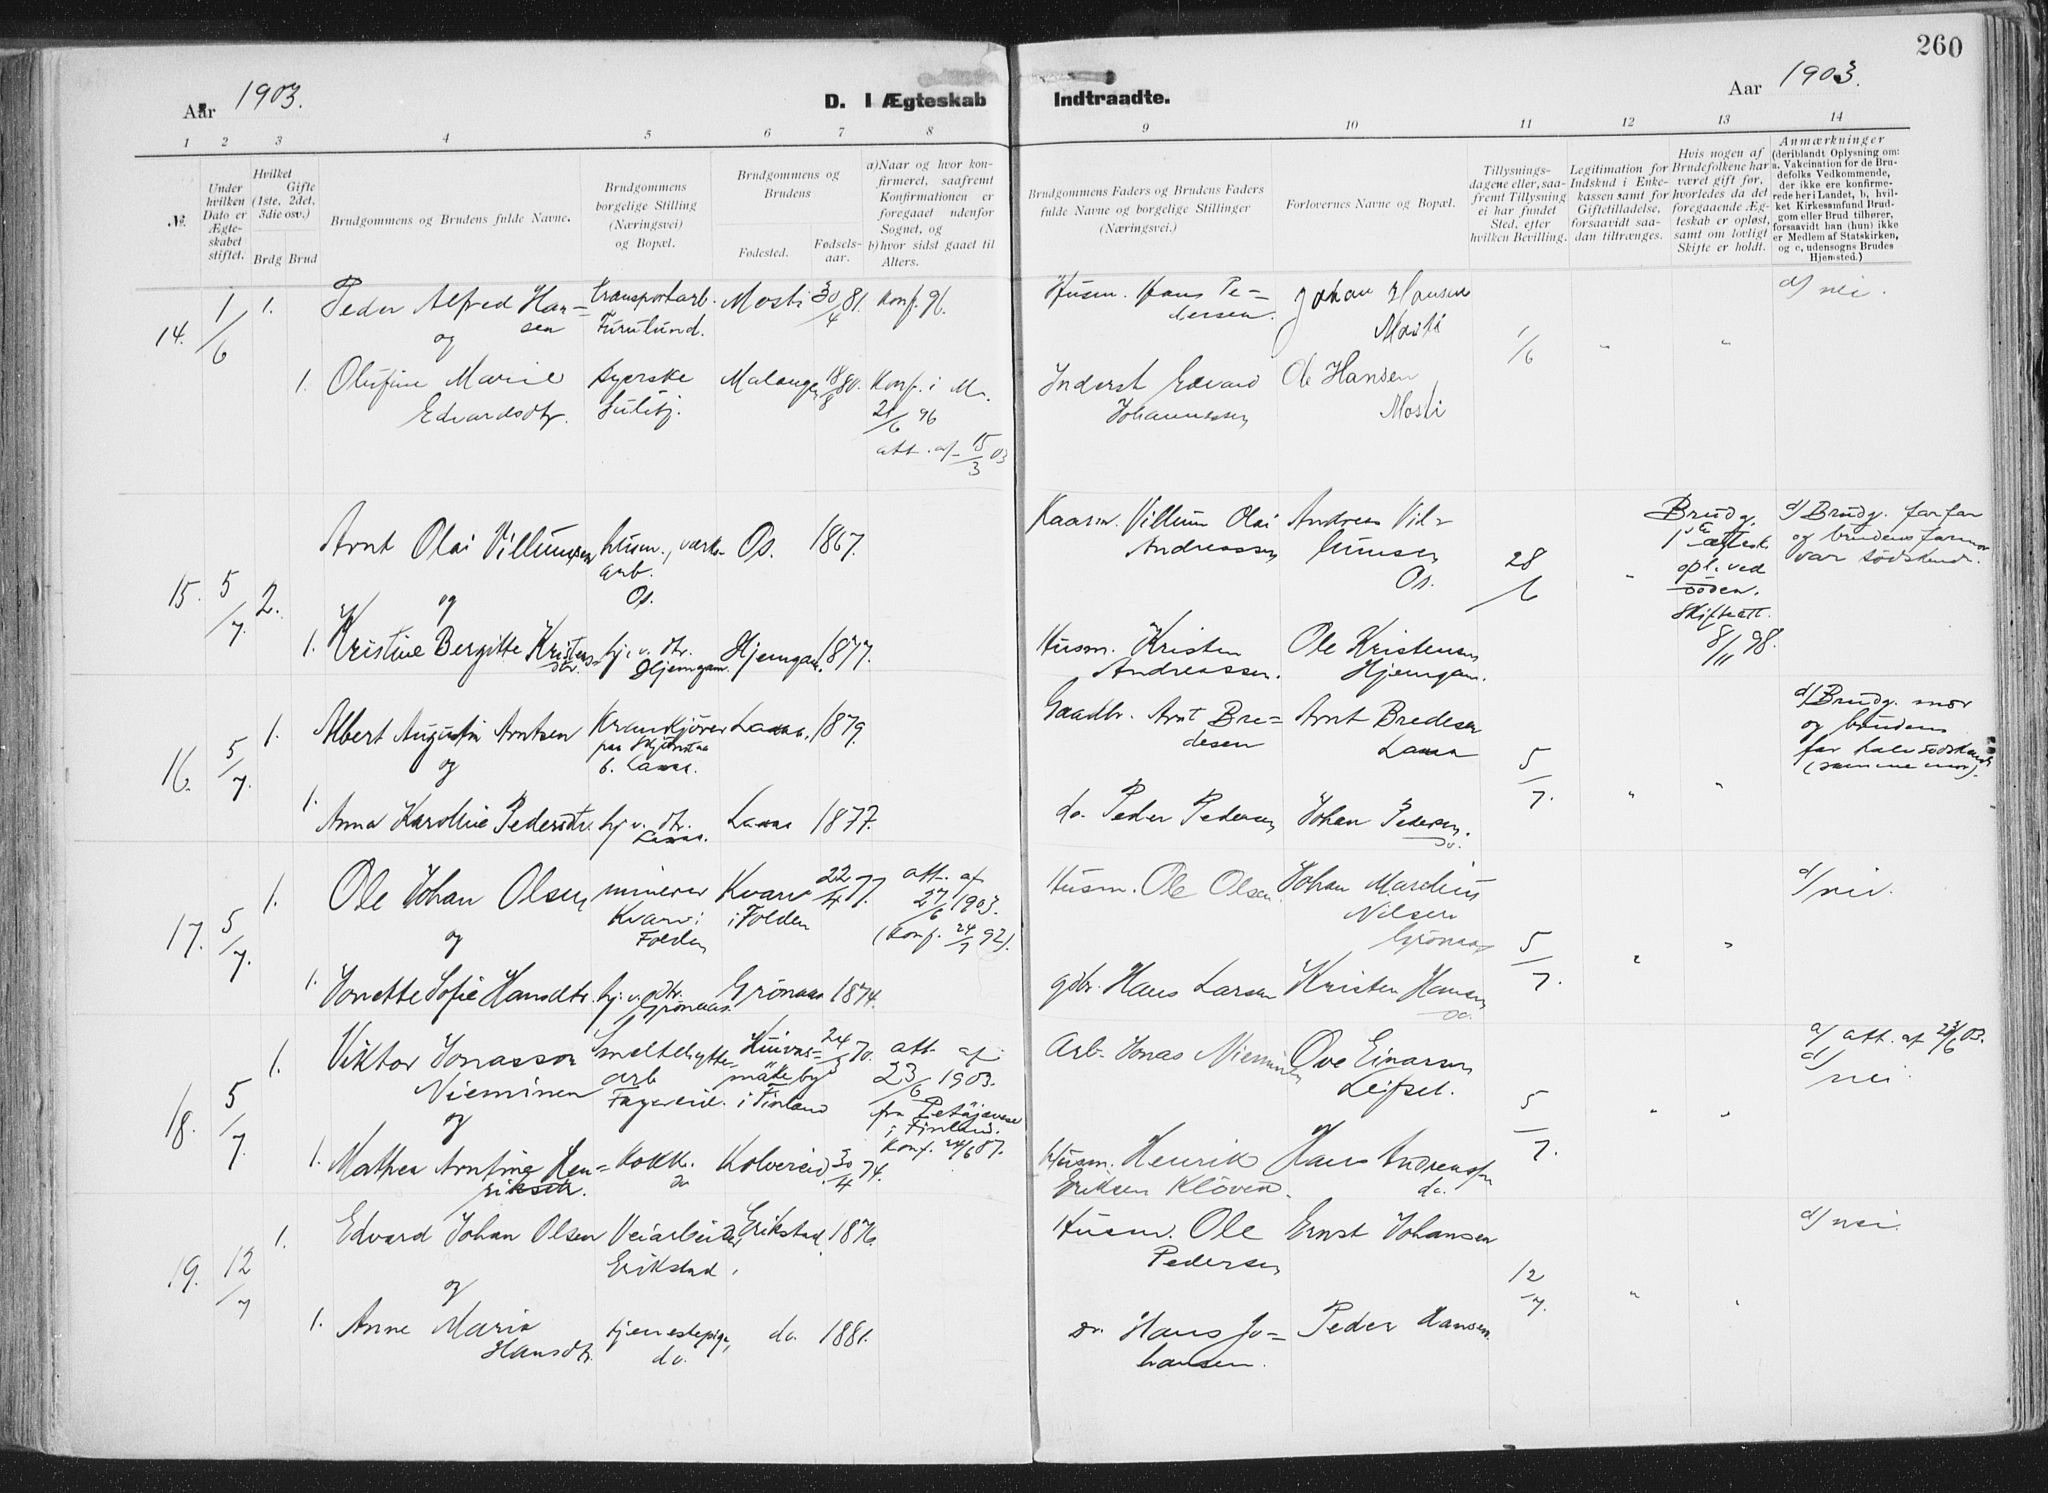 260
Aar 1903.
D. I Ægteskab Indtraadte.
Aar 1903.
1 2 3 4 5 6 7 8 9 10 11 12 13 14
№.
Under hvilken Dato er Ægte-skabet stiftet.
Hvilket Gifte (1ste, 2det, 3die osv.)
Brdg Brud
Brudgommens og Brudens fulde Navne.
Brudgommens borgelige Stilling (Næringsvei) og Bopæl.
Brudgommens og Brudens
Fødested. Fødsels-aar.
a) Naar og hvor kon-firmeret, saafremt Konfirmationen er foregaaet udenfor Sognet, og
b) hvor sidst gaaet til Alters.
Brudgommens Faders og Brudens Faders fulde Navne og borgelige Stillinger (Næringsvei.)
Forlovernes Navne og Bopæl.
Tillysnings-dagene eller, saa-fremt Tillysning ei har fundet Sted, efter hvilken Bevilling.
Legitimation for Indskud i Enke-kassen samt for Giftetilladelse, forsaavidt saa-dan tiltrænges.
Hvis nogen af Brudefolkene har været gift før, hvorledes da det foregaaende Æg-teskab er opløst, samt om lovligt Skifte er holdt.
Anmærkninger (deriblandt Oplysning om: a. Vakcination for de Bru-defolks Vedkommende, der ikke ere konfirme-rede her i Landet, b, hvil-ket Kirkesamfund Brud-gom eller Brud tilhører, forsaavidt han (hun) ikke er Medlem af Statskirken, og c, udensogns Brudes Hjemsted.)
14. 1/6 1. Peder Alfred Han=
sen
og
transportarb.
Furulund.
Mosti 30/4 81. Konf. 96.
Husm. Hans Pe=
dersen.
Johan Hansen
Mosti
1/6 " "
d/ nei.
1. Olufine Marie
Edvardsdtr.
Syerske
Sulitj.
Malangen 18/8 80. Konf. i M.
21/6 96
att. af 15/3 03
Inderst Edvard
Johannessen
Ole Hansen
Mosti
15. 5/7 2. Arnt Olai Villumsen
og
husm., værks
arb.
Os.
Os. 1867.
Kaarm. Villum Olai
Andreassen
Andreas Vil=
lumsen
Os.
28/6 "
Brudg.
1ste ægtesk.
opl. ved
døden.
Skifteatt.
8/11 98.
d/ Brudg. farfar
og brudens farmor
var södskende.
1. Kristine Bergitte Kristens
dtr.
hj. v. dtr.
Hjemgam.
Hjemgam. 1877.
Husm. Kristen
Andreassen.
Ole Kristensen
Hjemgam.
16. 5/7. 1. Albert Augustin Arntsen
og
Krankjører
paa
b. Laxaa.
Laxaa. 1879.
Gaadbr. Arnt Bre=
desen
Arnt Bredesen
Laxaa
5/7. " "
d/ Brudg. mor
og brudens
far halvsödskende
(samme mor).
1. Anna Karoline Pedersdtr.
hj. v. dtr.
Laxaa.
Laxaa 1877.
do. Peder Pedersen
Johan Pedersen.
do.
17. 5/7. 1. Ole Johan Olsen
og
minerer
Kvarv i
Folden
Kvarv
i Folden
22/4 77. att. af
27/6 1903.
(Konf. 24/7 92).
Husm. Ole Olsen.
Johan Mardius
Nilsen
Grönaas
5/7. " "
d/ nei.
1. Jonette Sofie Hansdtr.
hj. v. dtr.
Grönaas.
Grönaas 1874.
gdbr. Hans Larsen
Kristen Hansen
do.
18. 5/7. 1. Viktor Jonasson
Nieminen
og
Smeltehytte-
arb
Fagereid.
mäke by
i Finland
24/3 70. att. af
23/6 1903.
fra Petäjävesi
i Finland.
Konf. 24/6 87.
Arb. Jonas Nieminen
Ove Einarsen
Leifset.
5/7. " "
a/ att. af 23/6 03.
d/
nei.
1. Mathea Arntine Hen=
riksdtr.
Kokk.
do
Kolvereid. 30/4 74.
Husm. Henrik
Eriksen Klöven.
Hans Andreassen
do.
19. 12/7 1. Edvard Johan Olsen
og
Veiarbeider
Erikstad.
Erikstad. 1876.
Husm. Ole
Pedersen
Ernst Johansen
12/7. " "
d/ nei.
1. Anne Maria
Hansdtr.
tjenestepige,
do.
do. 1881.
do. Hans Jo=
hansen.
Peder Hansen.